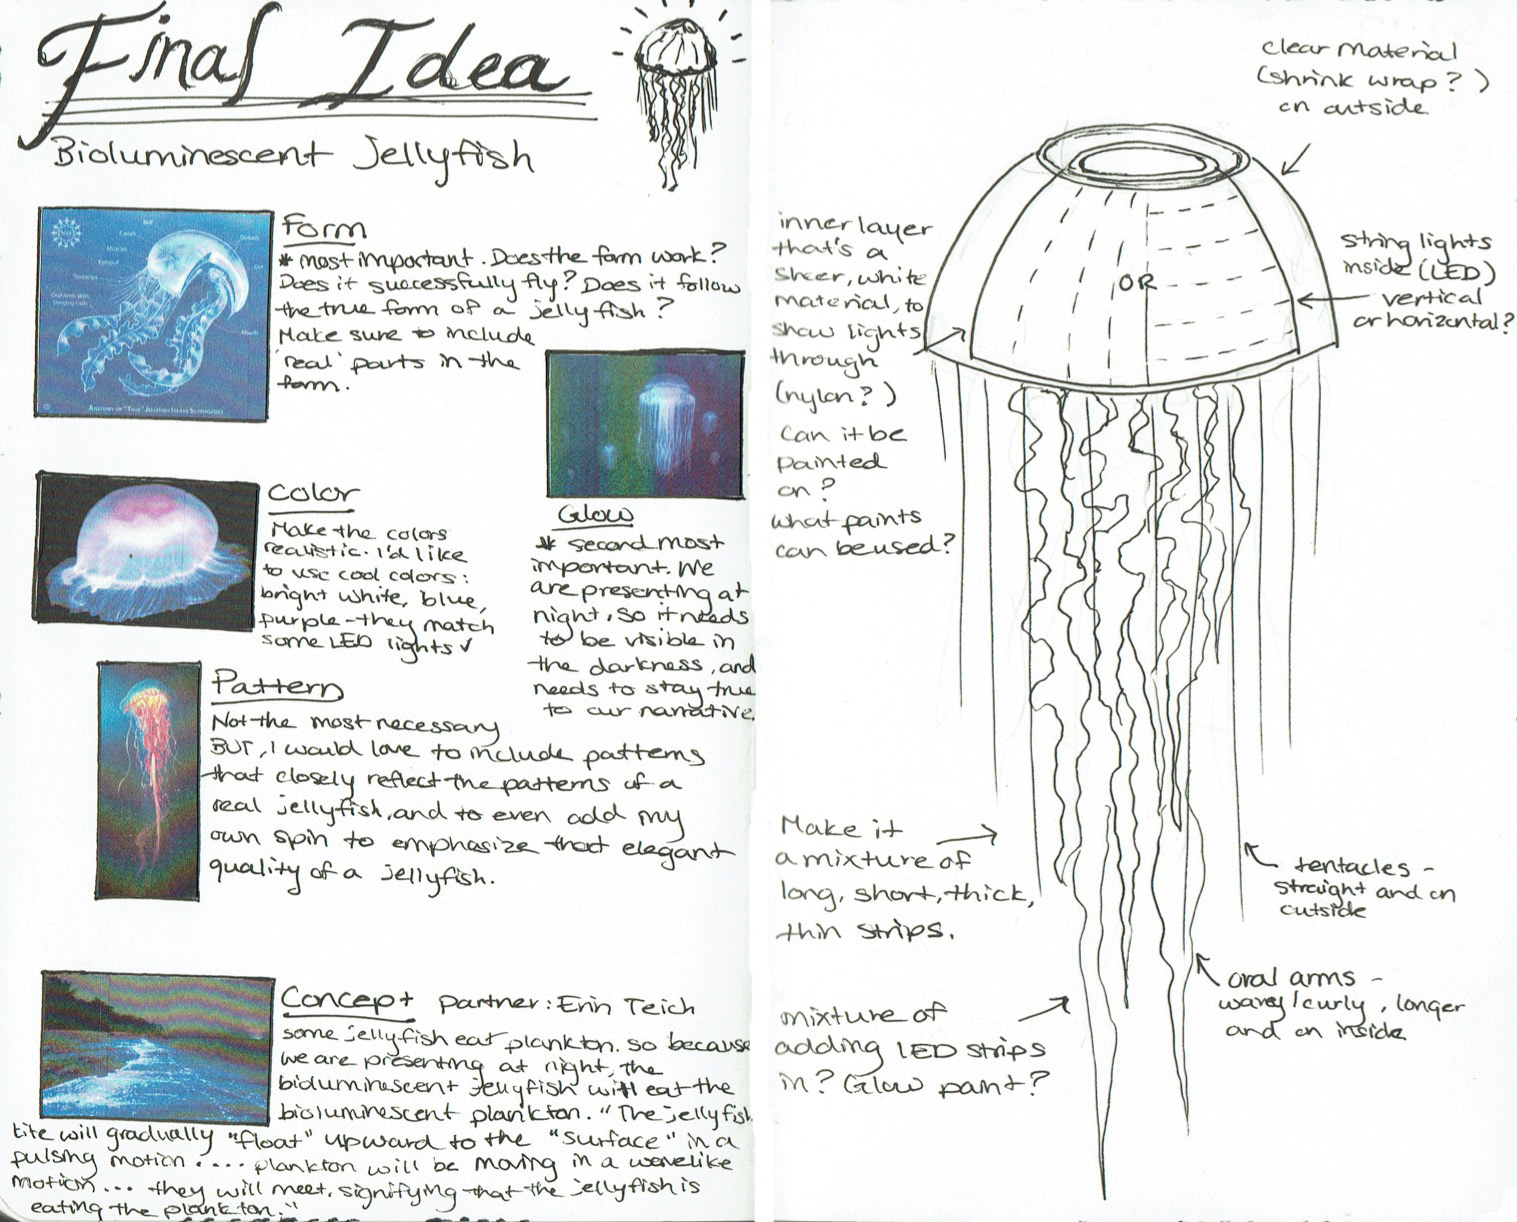 Final Idea
Bioluminescent Jellyfish
Form
* most important. Does the form work?
Does it successfully fly? Does it follow
the true form of a jellyfish?
Make sure to include
'real' parts in the
form.
Bell
Canals
Muscles
Tentacles
Oral Arms With
Stinging Cells
Mouth
ANATOMY OF "TRUE" JELLYFISH (CLASS SCYPHOZOA)
Color
Make the colors
realistic. I'd like
to use cool colors:
bright white, blue,
purple - they match
some LED lights ✓
Glow
* second most
important. We
are presenting at
night, so it needs
to be visible in
the darkness, and
needs to stay true
to our narrative.
Pattern
Not the most necessary
BUT, I would love to include patterns
that closely reflect the patterns of a
real jellyfish, and to even add my
own spin to emphasize that elegant
quality of a jellyfish.
Concept partner: Erin Teich
some jellyfish eat plankton. so because
we are presenting at night, the
bioluminescent jellyfish will eat the
bioluminescent plankton. "The jellyfish
kite will gradually "float" upward to the "surface" in a
pulsing motion.... plankton will be moving in a wavelike
motion... they will meet, signifying that the jellyfish is
eating the plankton."
clear material
(shrink wrap?)
on outside.
inner layer
that's a
sheer, white
material, to
show lights
through
(nylon?)
Can it be
painted
on?
what paints
can be used?
OR
string lights
inside (LED)
vertical
or horizontal?
Make it
a mixture of
long, short, thick,
thin strips.
tentacles -
straight and on
outside
oral arms -
wavey/curly, longer
and on inside
mixture of
adding LED strips
in? Glow paint?